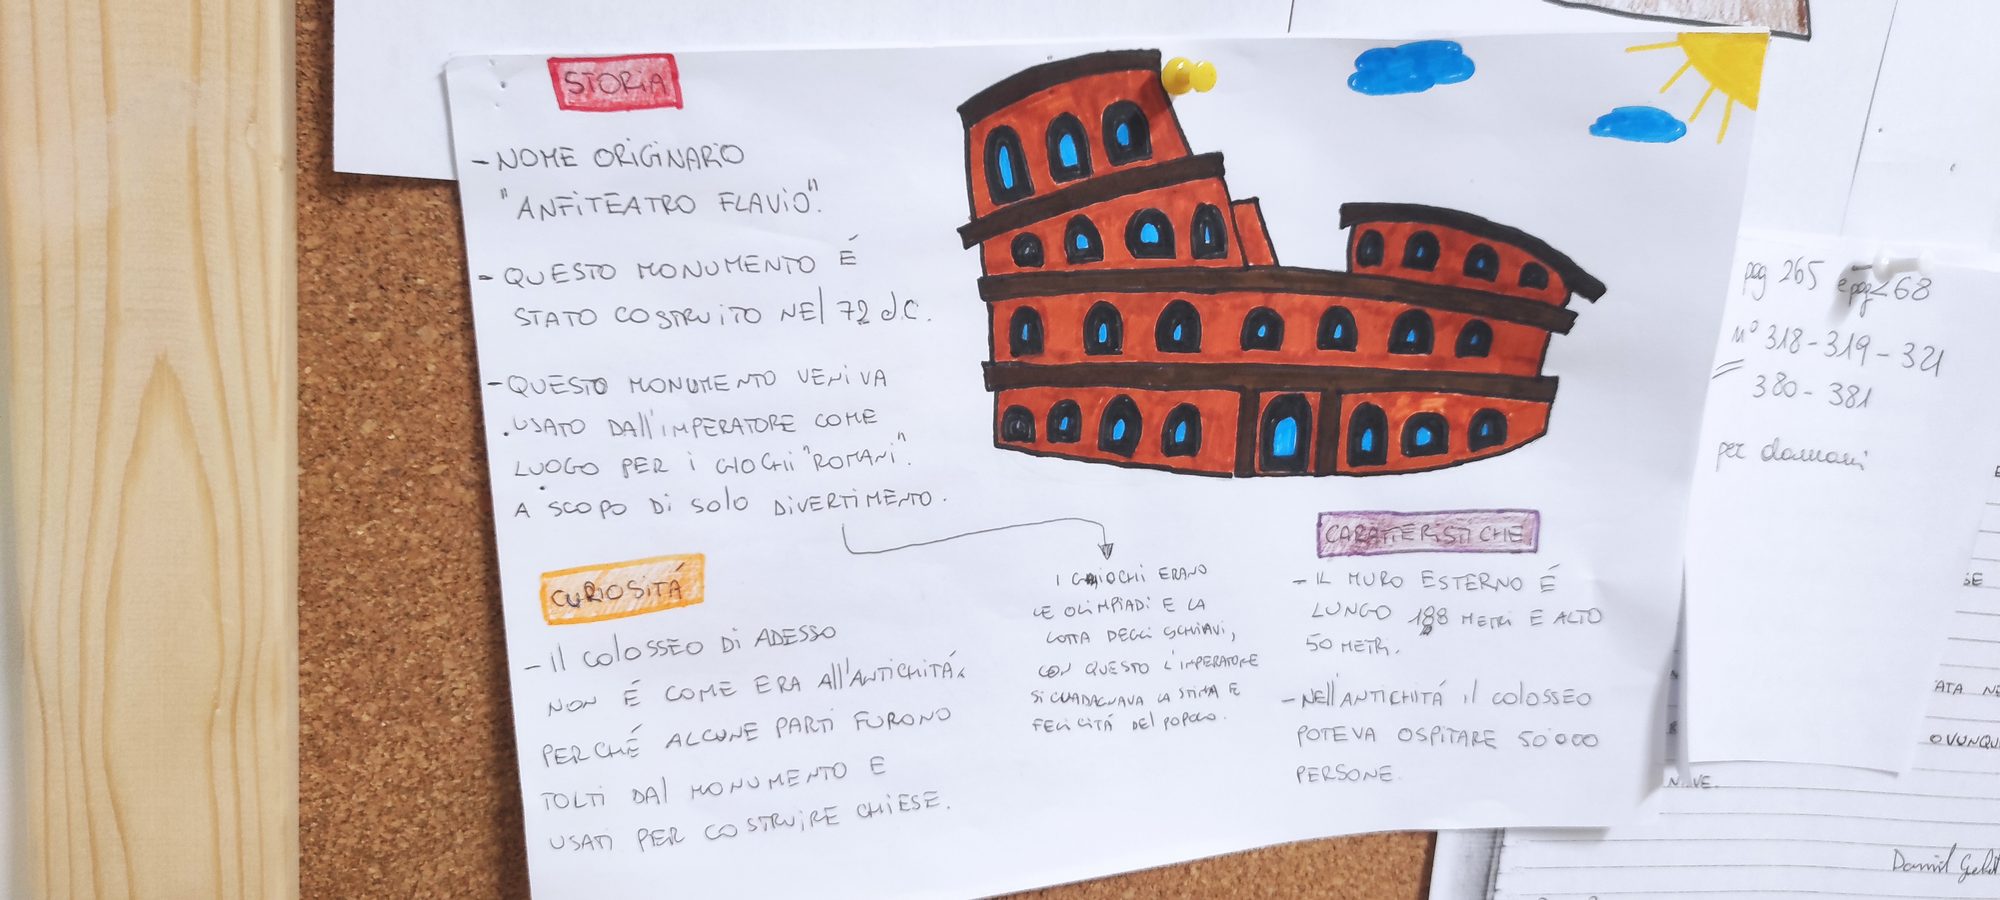 STORIA
- NOME ORIGINARIO
"ANFITEATRO FLAVIO".
- QUESTO MONUMENTO É
STATO COSTRUITO NEL 72 d.C.
- QUESTO MONUMENTO VENIVA
USATO DALL'IMPERATORE COME
LUOGO PER I GIOCHI "ROMANI".
A SCOPO DI SOLO DIVERTIMENTO.
CURIOSITÁ
- IL COLOSSEO DI ADESSO
NON É COME ERA ALL'ANTICHITÁ
PERCHÉ ALCUNE PARTI FURONO
TOLTI DAL MONUMENTO E
USATI PER COSTRUIRE CHIESE.
I GIOCHI ERANO
LE OLIMPIADI E LA
LOTTA DEGLI SCHIAVI,
CON QUESTO L'IMPERATORE
SI GUADAGNAVA LA STIMA E
FELICITÁ DEL POPOLO.
CARATTERISTICHE
- IL MURO ESTERNO É
LUNGO 188 METRI E ALTO
50 METRI.
- NELL'ANTICHITÁ IL COLOSSEO
POTEVA OSPITARE 50'000
PERSONE.
pag 265 e pag 268
n° 318 - 319 - 321
380 - 381
per domani
SE
ATA NE
OVUNQU